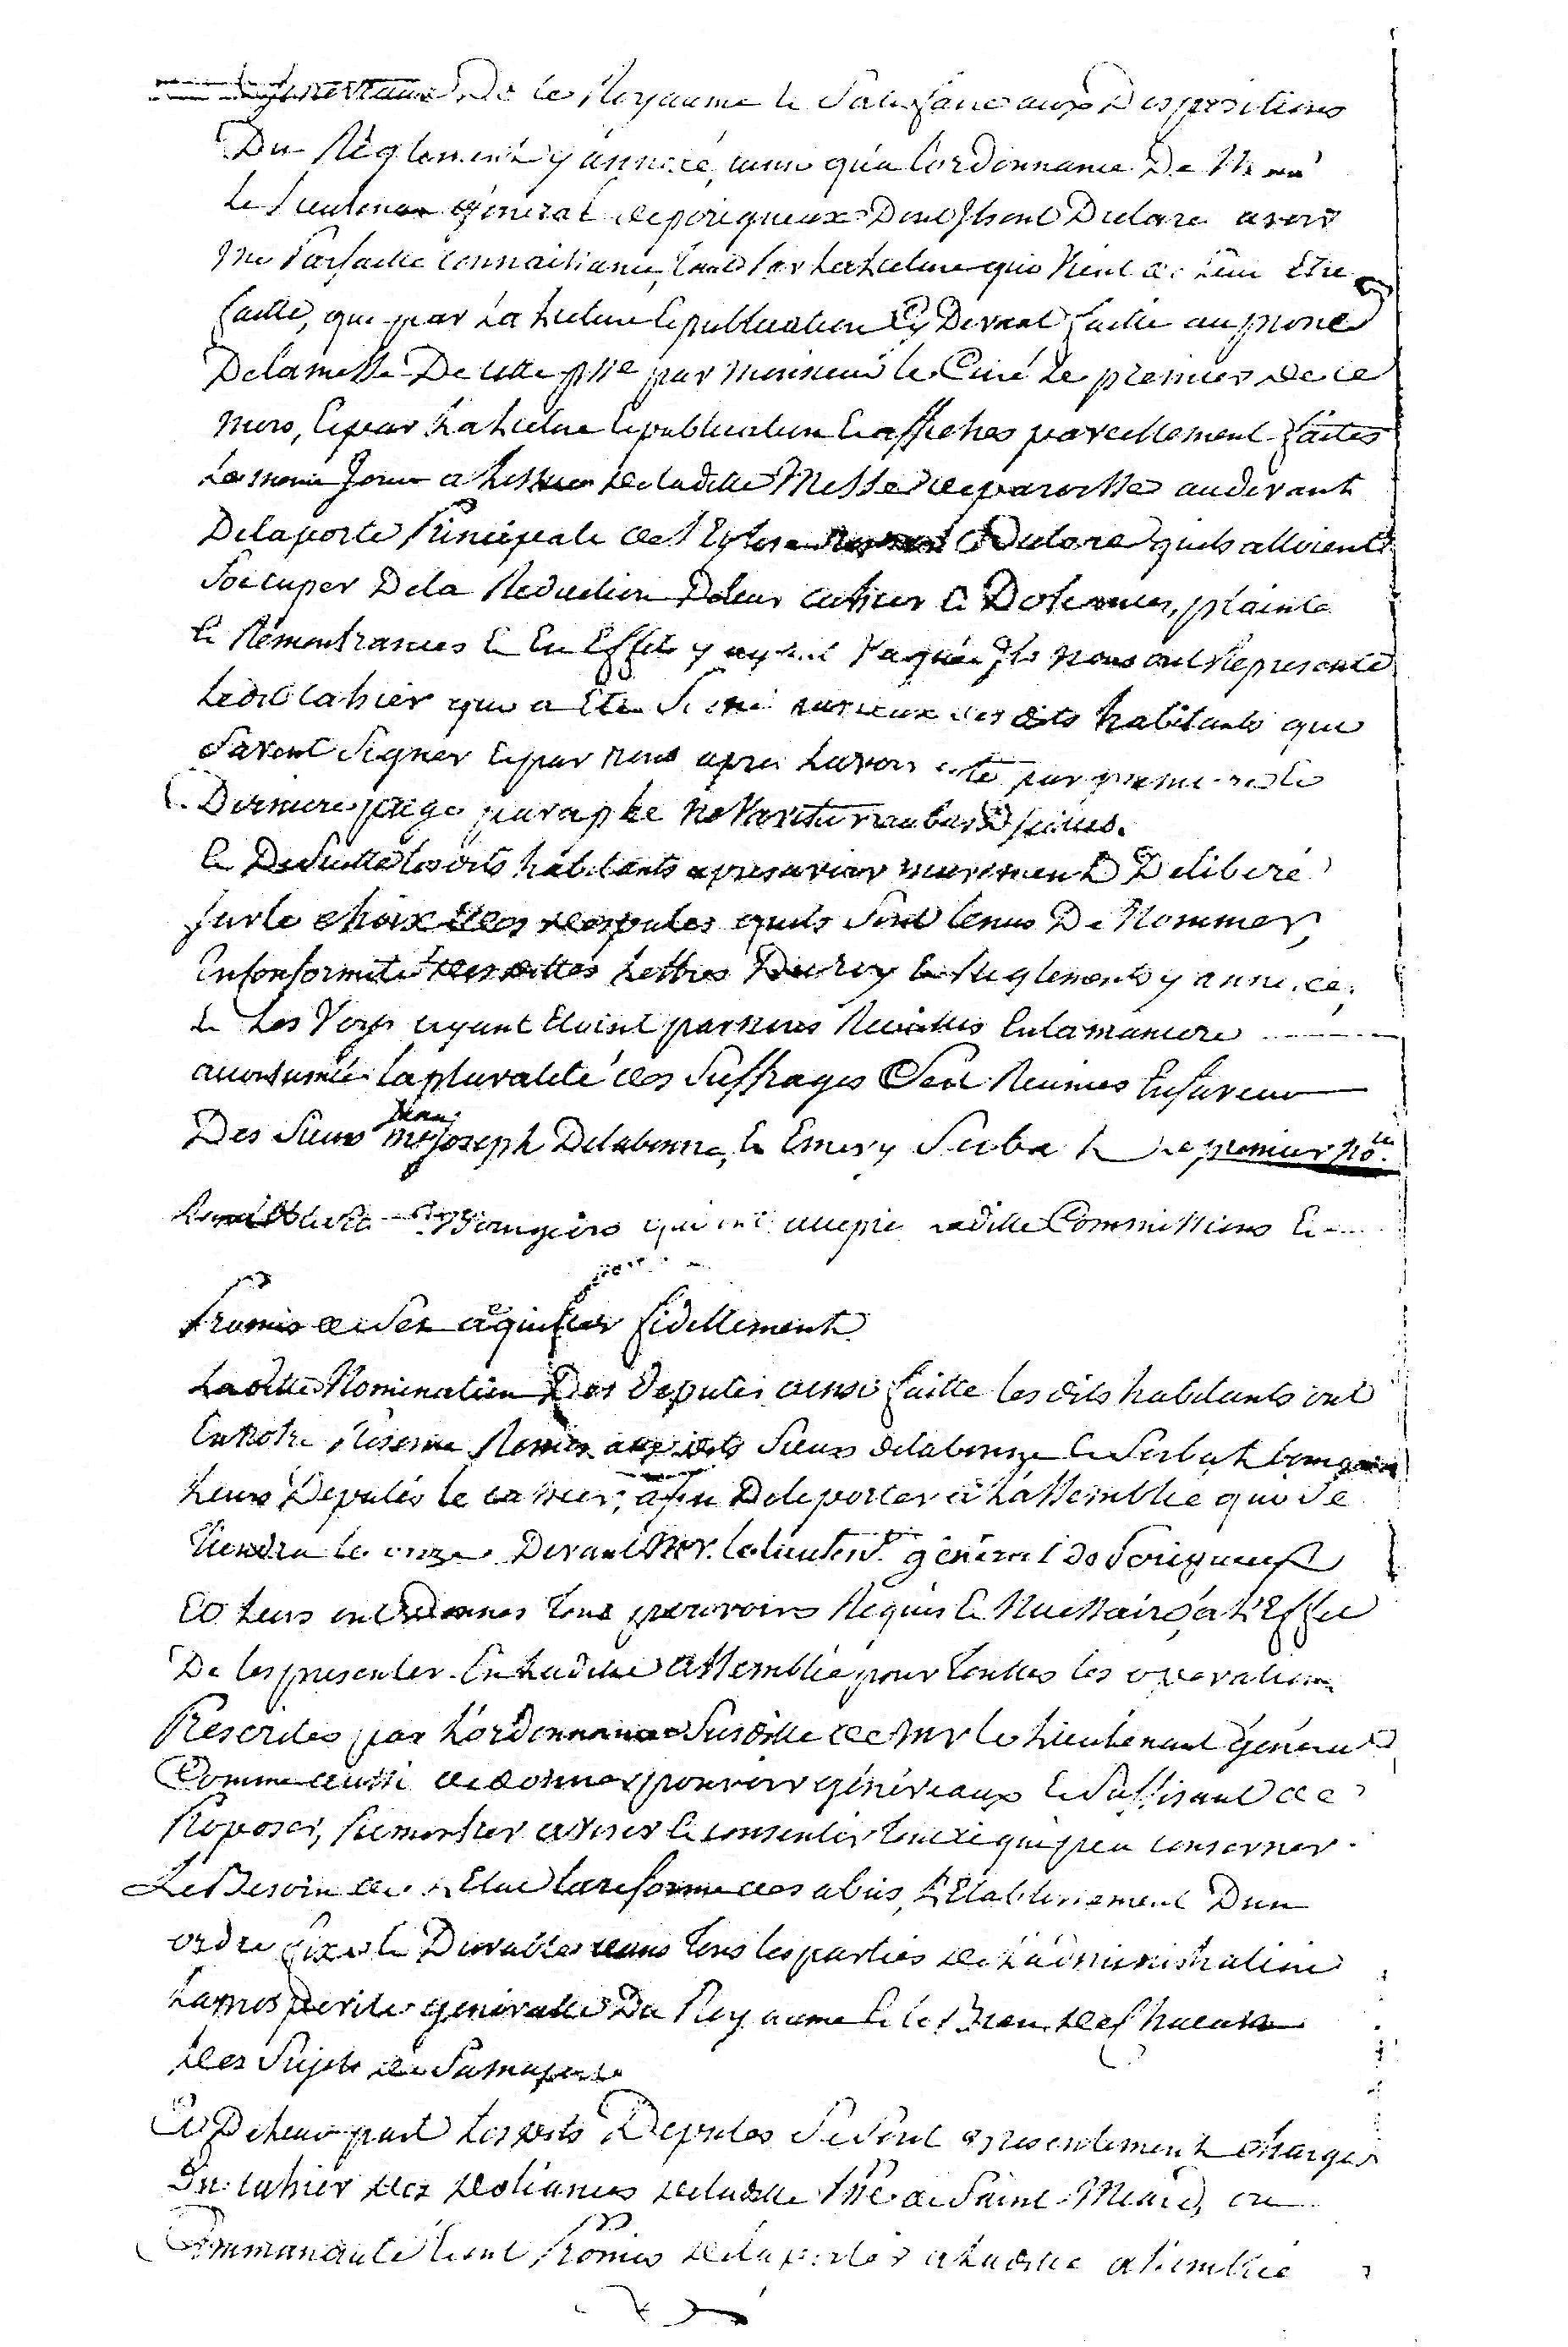 generaux De ce Royaume & Satisfaire aux Dispositions
Du Règlement y annexé, ainsi qu'a l'ordonnance De
le Lieutenant général de perigueux Dont Ils ont Declare avoir
une Parfaitte connaissance, tant Par La Lecture qui Vient de Leur Etre
faitte, que par La Lecture & publication Cy Devant faitte au prone
Delamesse De cette psse par monsieur le Curé Le premier de ce
mois, & par La Lecture & publication & affiches pareillement faites
Le meme Jour a Lissue de laditte Messe de paroisse au devant
De la porte Principale de l'Eglise Declare quils alloient
Soccuper Dela Redaction De leur cahier de Doleances, plainte
& Remontrances & En Effet y ayant Vaqué Ils nous ont Represente
Ledit Cahier qui a Ete Signé par ceux des dits habitants qui
Savent Signer & par nous apres Lavoir par premiere &
Derniere page paraphé ne Varietur au bas D'icelles.
& De Suitte les dits habitants apres avoir murement Deliberé
sur le choix des deputes quils Sont tenus De Nommer,
En conformite des dittes Lettres Du roy & Reglements y annexé,
& Les Voix ayant Etoint par nous Recuillis En la maniere
accoutumée la pluralité des Suffrages Sest Reunies En faveur
Des Sieurs Jean Joseph Delabonne, & Emery Serba le premier no.re
Bourgeois qui ont accepté laditte Commissions &
Promis de Sen aquitter fidellement
Laditte Nomination Des deputés ainsi faitte les dits habitants ont
En notre Presence Remis aux dits Sieurs delabonne & Serbat bourgeois
Leurs Deputés le cahier, afin De le porter à L'assemblée qui Se
Tiendra le onze Devant Mr. le lieuten.t général de Perigueux
Et Leurs ont Donnes tous pouvoirs Requis & Necessaires, à L'Effet
De les presenter En Laditte assemblée pour Touttes les operations
Prescrites par L'ordonnance Susditte de Mr le Lieutenant général
Comme aussi de donner pouvoir généreaux & Suffisant de
Proposer, Remontrer aviser & consentir tout ce qui peu conserner
Le Besoin de L'Etat la reforme des abus, L'Etablissement D'un
ordre fixe & Durable dans tous les parties de L'administration
La prosperite generalle Du Royaume & le Bien de Chacun
des Sujets de Sa majesté
Et De Leur part Les dits Deputes Se Sont presentement charges
Du cahier des doliances de laditte Psse de Saint Meard, ou
Communauté & ont Promis de la porter a Laditte assemblée